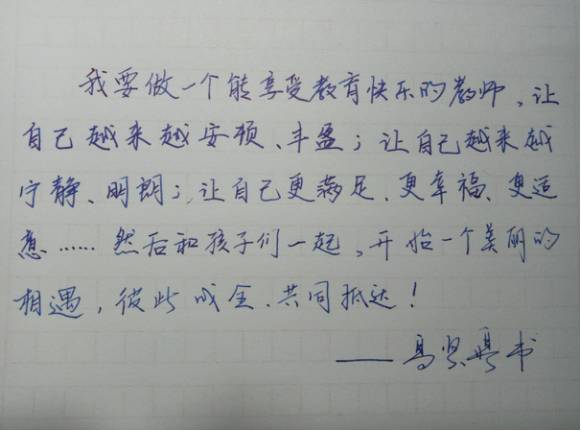 我要做一个能享受教育快乐的教师、让
自己越来越安顿、丰盈；让自己越来越
宁静、明朗；让自己更满足、更幸福、更适
意……然后和孩子们一起、开始一个美丽的
相遇，彼此成全、共同抵达！
——高贤勇书